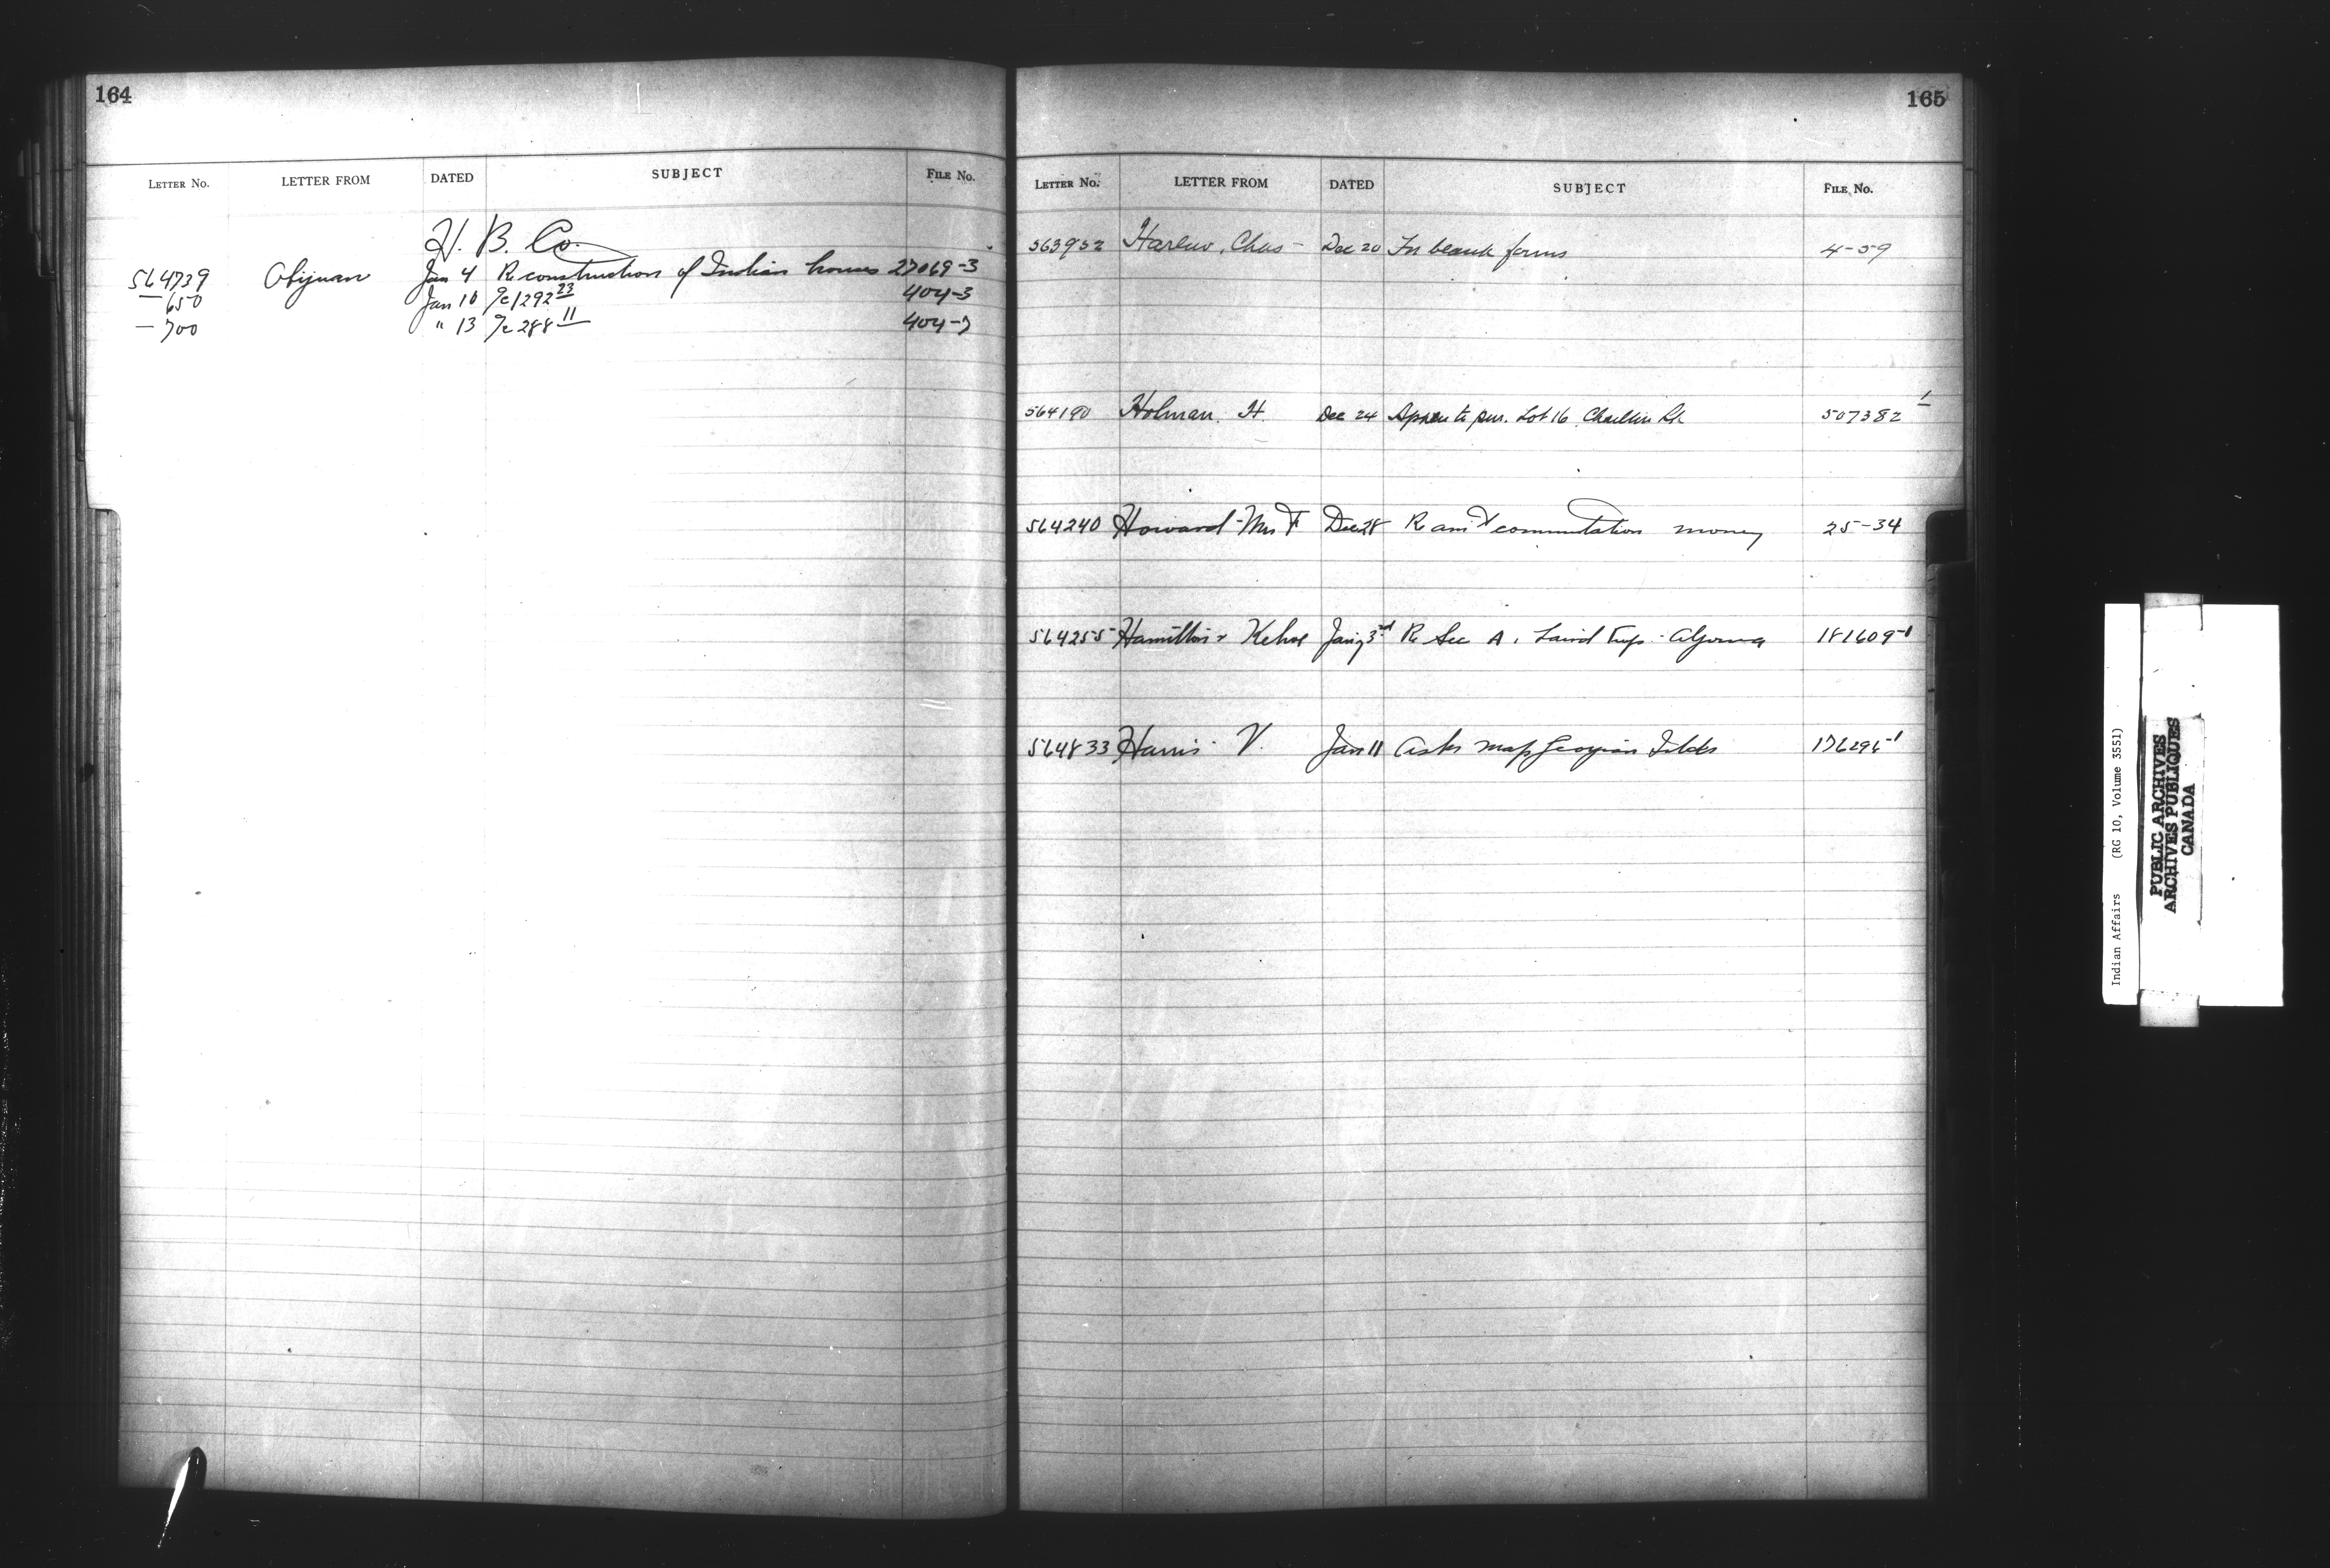 164
LETTER No. LETTER FROM DATED SUBJECT FILE No.
H. B. Co.
564739 Obijuan Jan 4 Re construction of Indian houses 27069-3
— 650 Jan 10 1292 23 404-3
— 700 " 13 288 11 404-7
165
LETTER No. LETTER FROM DATED SUBJECT FILE No.
563952 Harlow, Chas - Dec 20 For blank forms 4-59
564190 Holman, H. Dec 24 to pur. Lot 16 507382 1
564240 Howard - Mrs F Dec 28 Re commutation money 25-34
564255 Hamilton & Kehoe Jany 3rd Re Sec A. Laird Twp - Algoma 181609-1
564833 Harris V. Jan 11 Asks map Georgian Islds 176296-1
Indian Affairs (RG 10, Volume 3551)
PUBLIC ARCHIVES
ARCHIVES PUBLIQUES
CANADA